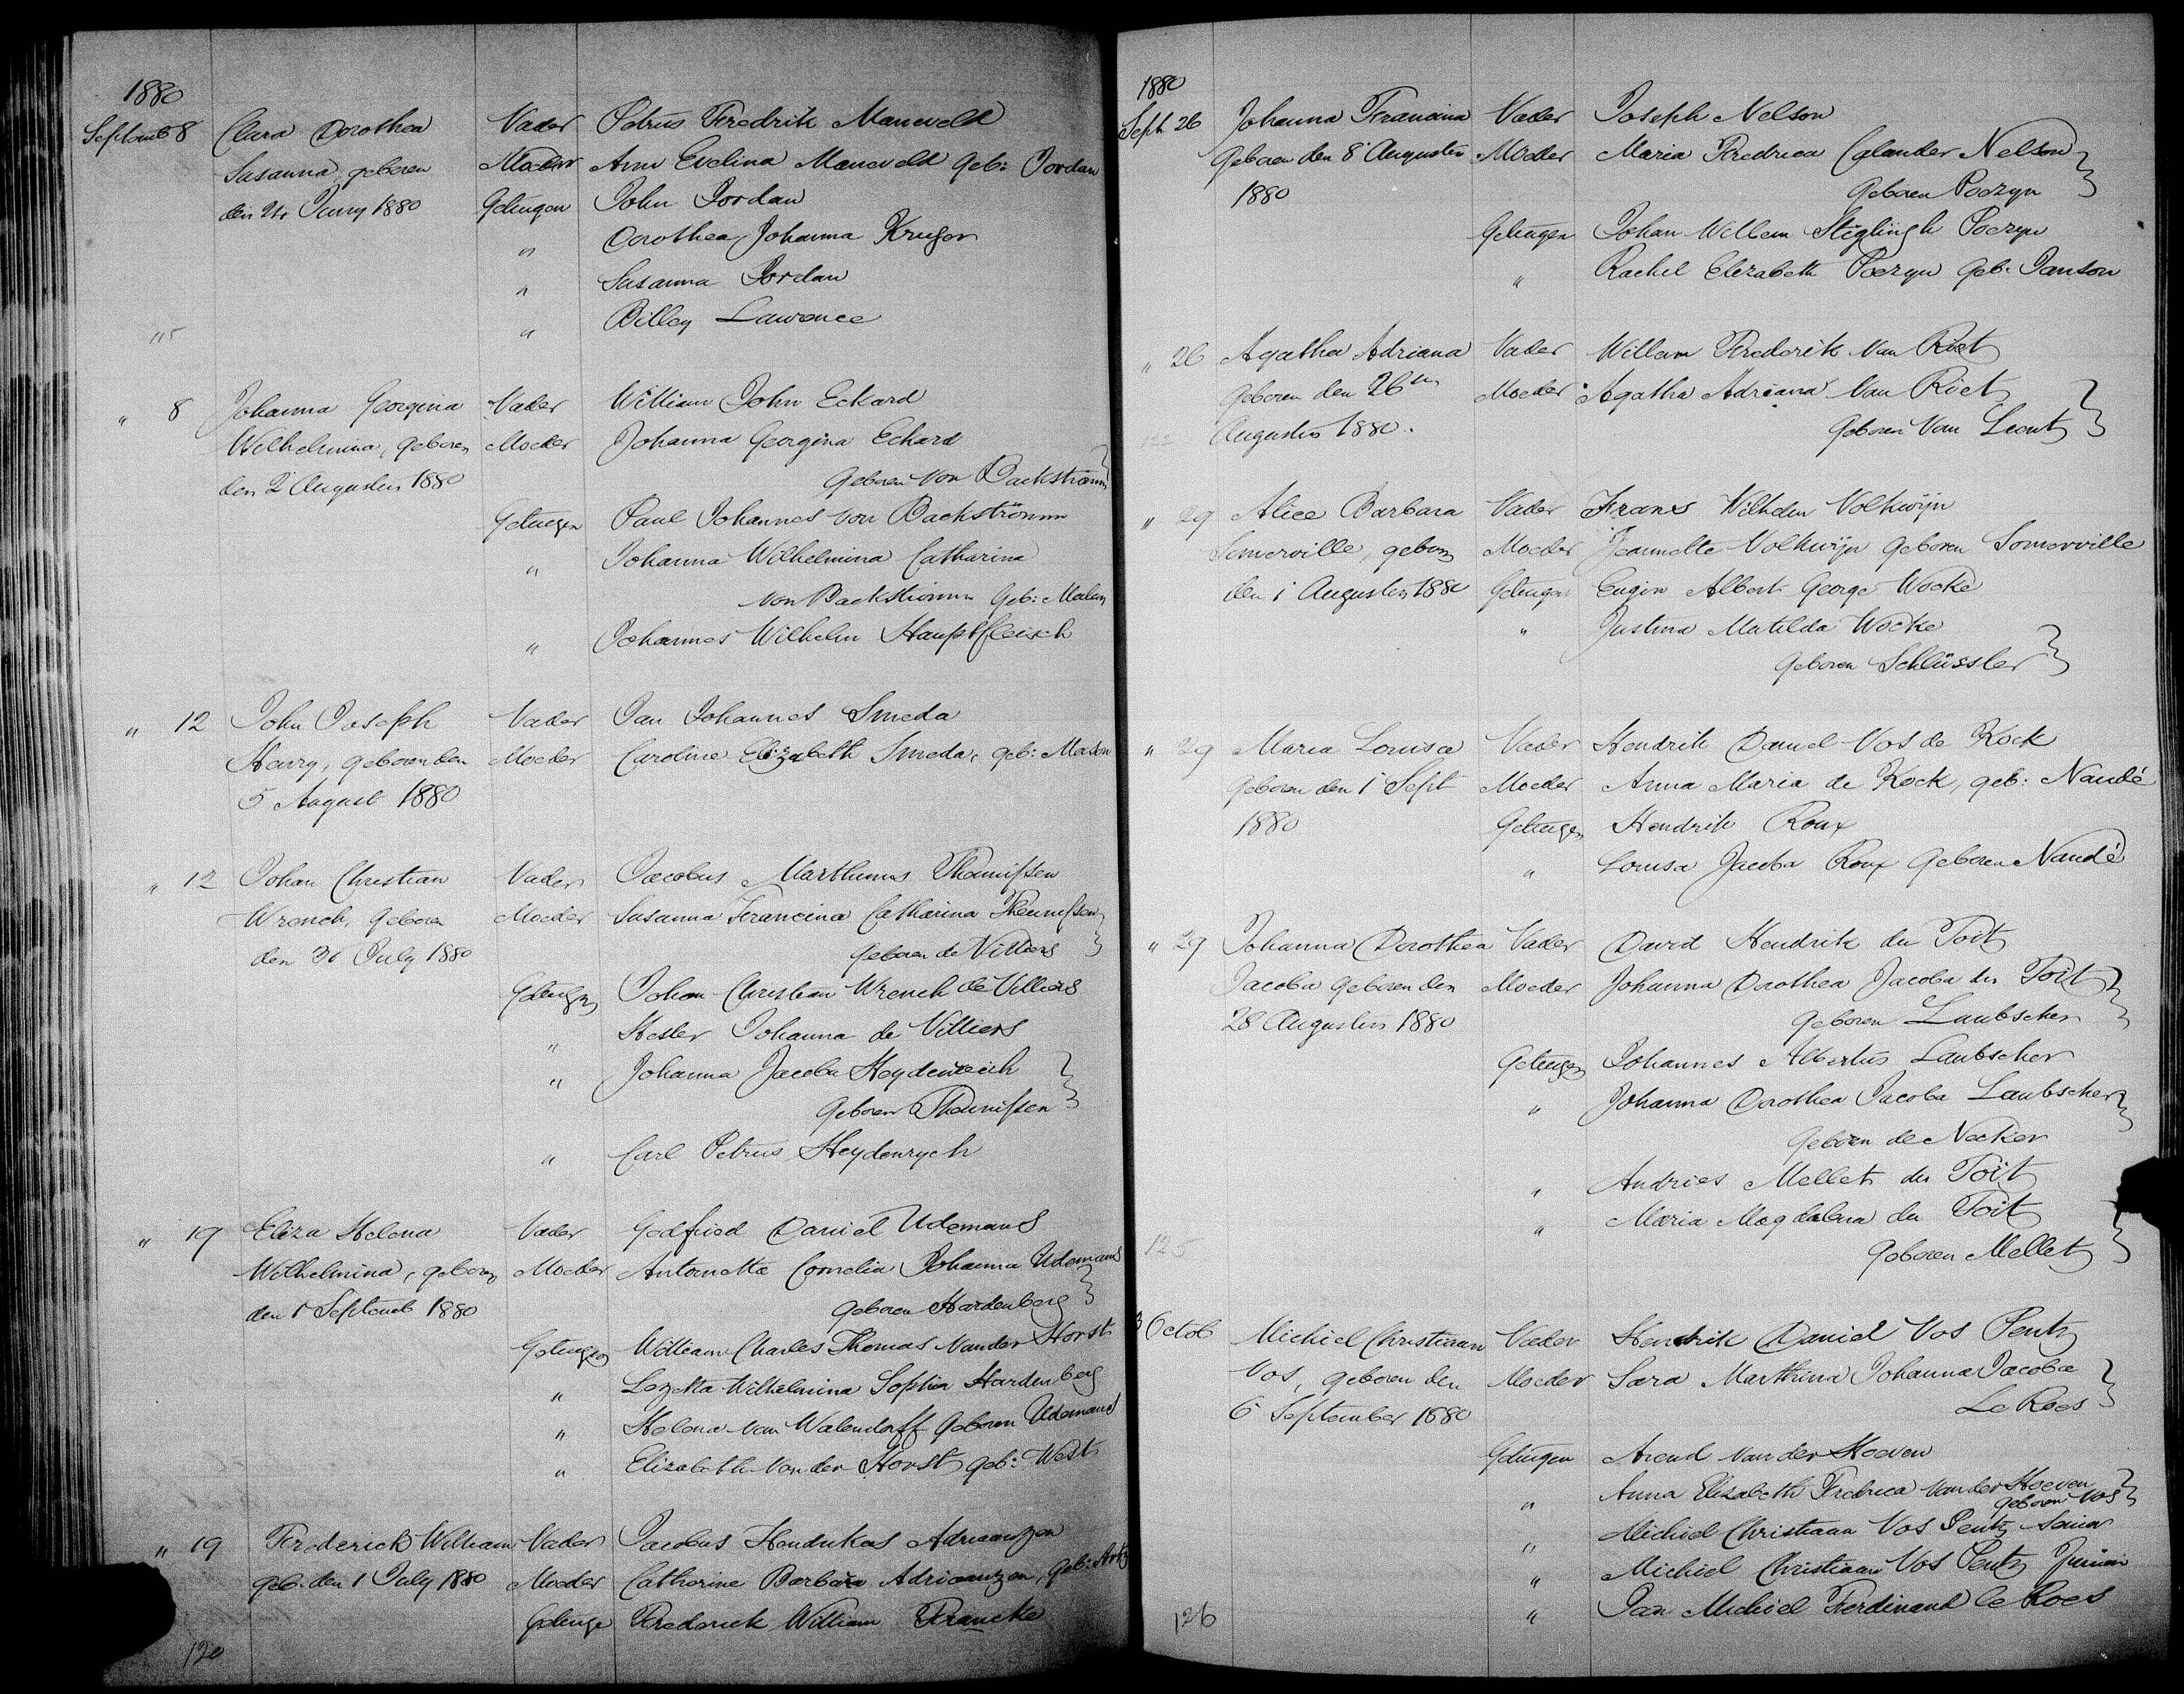 1880
Septemb 8 Clara Dorothea Vader Petrus Fredrik Maneveld
Susanna, geboren Moeder Ann Evelina Maneveld geb: Jordan
den 24 Juny 1880 Getuigen John Jordan
" Dorothea Johanna Kruger
" Susanna Jordan
" Billey Lawrence
115
" 8 Johanna Georgina Vader William John Eckard
Wilhelmina, geboren Moeder Johanna Georgina Eckard
den 2 Augustus 1880 Geboren von Backström
Getuigen Paul Johannes von Backströmm
" Johanna Wilhelmina Catharina
von Backströmm Geb: Malan
" Johannes Wilhelm Hauptfleisch
" 12 John Joseph Vader Jan Johannes Smeda
Harry, geboren den Moeder Caroline Elizabeth Smeda, geb: Mason
5 August 1880
" 12 Johan Christian Vader Jacobus Marthinus Theunissen
Wrench, Geboren Moeder Susanna Francina Catharina Theunissen
den 30 July 1880 geboren de Villiers
Getuigen Johan Christian Wrench de Villiers
" Hester Johanna de Villiers
" Johanna Jacoba Heydenreich
Geboren Theunissen
" Carl Petrus Heydenrych
" 19 Eliza Helena Vader Godfried Daniel Udemans
Wilhelmina, geboren Moeder Antonetta Cornelia Johanna Udemans
den 1 Septemb 1880 geboren Hardenberg
Getuigen William Charles Thomas Vander Horst
" Lezetta Wilhelmina Sophia Hardenberg
" Helena van Walendorff Geboren Udemans
" Elizabeth Van der Horst geb: West
" 19 Frederick William Vader Jacobus Hendrikas Adriaanzen
Geb. den 1 July 1880 Moeder Catherine Barbara Adriaanzen, Geb:
Getuige Frederick William Francke
120
1880
Sept 26 Johanna Francina Vader Joseph Nelson
Geboren den 8 Augustus Moeder Maria Fredrica Calander Nelson
1880 Geboren Poezyn
Getuigen Johan Willem Steglingh Poezyn
" Rachel Elizabeth Poezyn Geb. Janson
" 26 Agatha Adriana Vader Willem Frederik Van Riet
Geboren den 26ten Moeder Agatha Adriana Van Riet
Augustus 1880. Geboren Van Lient
" 29 Alice Barbara Vader Frans Wilhelm Volkwijn
Somerville, geboren Moeder Jeannette Volkwijn Geboren Somerville
den 1 Augustus 1880 Getuigen Eugin Albert George Wocke
" Justina Matilda Wocke
Geboren Schlüssler
" 29 Maria Louisa Vader Hendrik Daniel Vos de Kock
Geboren den 1 Sept Moeder Anna Maria de Kock, geb: Naudé
1880 Getuigen Hendrik Roux
" Louisa Jacoba Roux Geboren Naudé
" 29 Johanna Dorothea Vader David Hendrik du Toit
Jacoba geboren den Moeder Johanna Dorothea Jacoba du Toit
28 Augustus 1880 Geboren Laubscher
Getuigen Johannes Albertus Laubscher
" Johanna Dorothea Jacoba Laubscher
Geboren de Necker
" Andries Mellet du Toit
" Maria Magdalena du Toit
125 Geboren Mellet
3 Octob Michiel Christiaan Vader Hendrik Daniel Vos Pentz
Vos, geboren den Moeder Sara Marthina Johanna Jacoba
6 September 1880 Le Roes
Getuigen Arend van der Hoeven
" Anna Elizabeth Fredrica Van der Hoeven
geboren Vos
" Michiel Christiaan Vos Pentz Senior
" Michiel Christiaan Vos Pentz Junior
126 " Jan Michiel Ferdinand le Roes